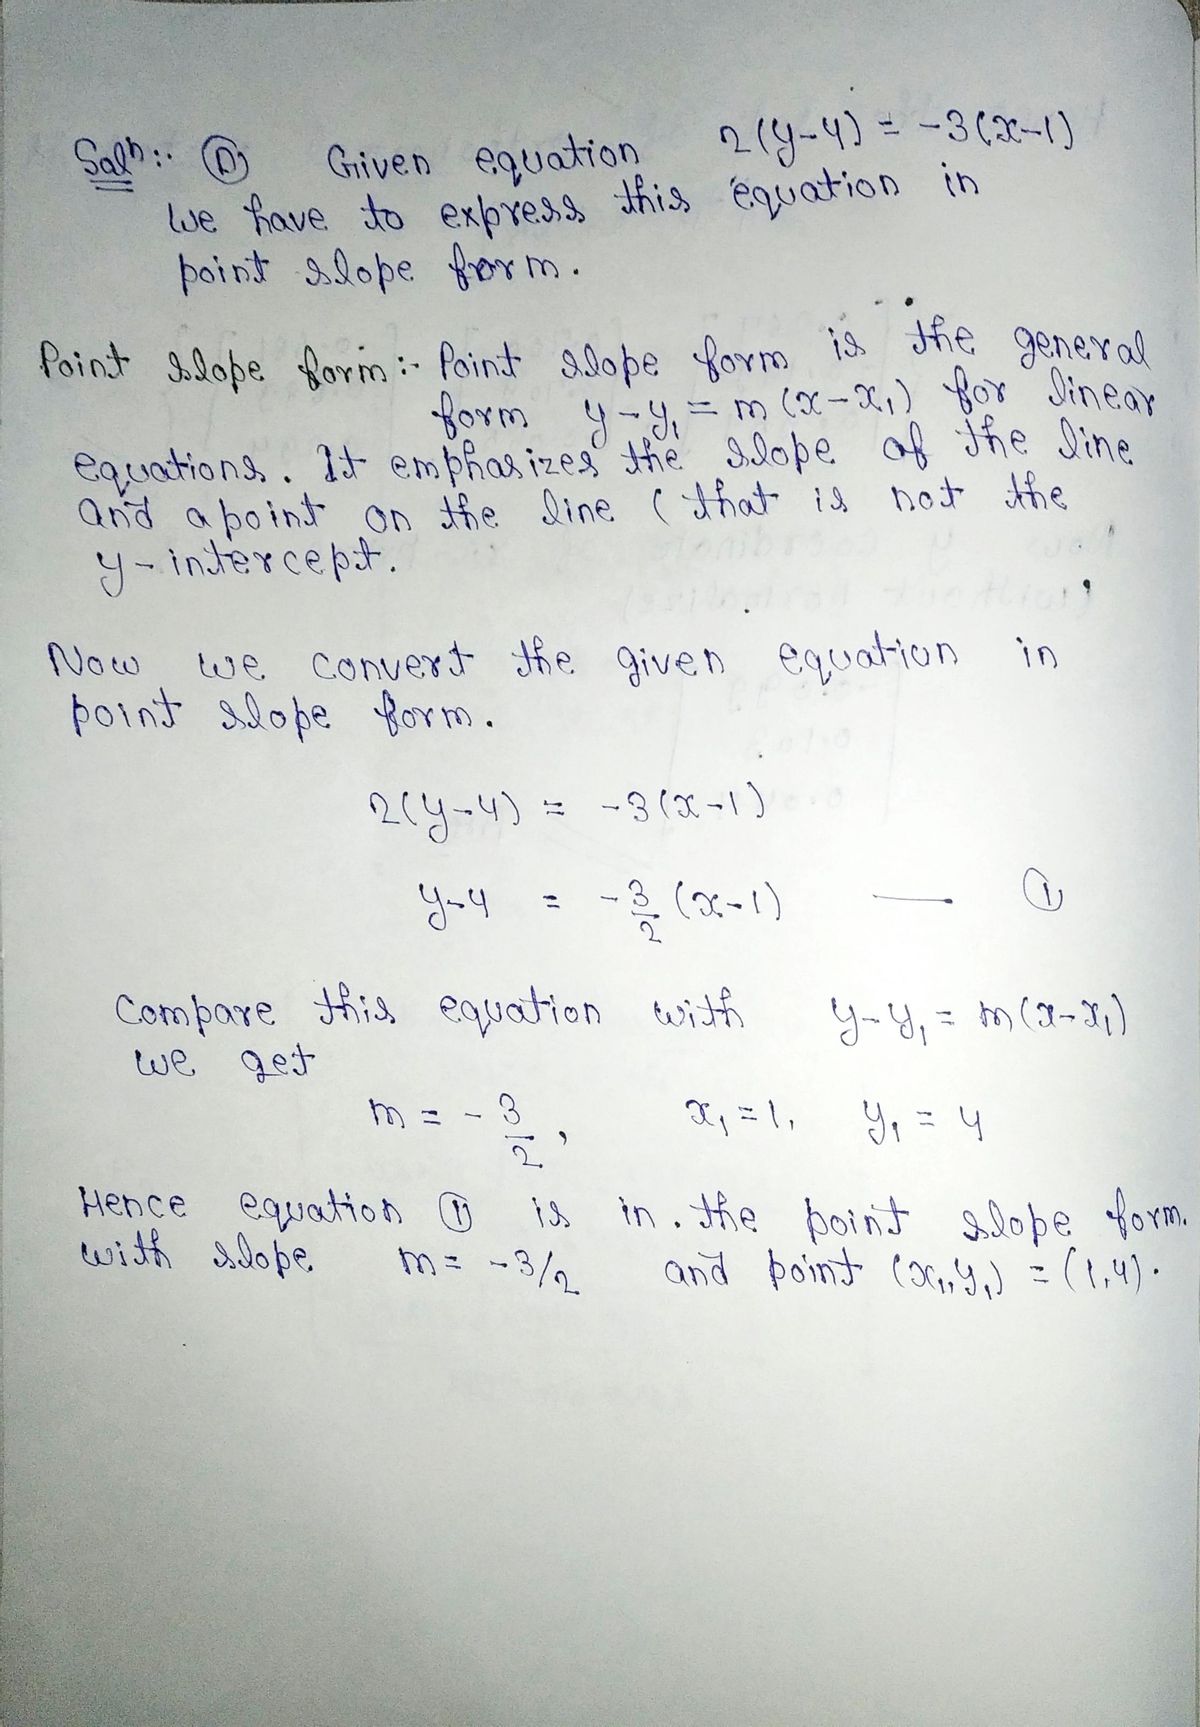 Solⁿ:- ① Given equation 2(y-4) = -3(x-1)
we have to express this equation in
point slope form.
Point slope form:- Point slope form is the general
form y-y₁ = m(x-x₁) for linear
equations. It emphasizes the slope of the line
and a point on the line (that is not the
y-intercept.
Now we convert the given equation in
point slope form.
2(y-4) = -3(x-1)
y-4 = -3/2 (x-1) — ①
Compare this equation with y-y₁ = m(x-x₁)
we get
m = -3/2, x₁ = 1, y₁ = 4
Hence equation ① is in the point slope form.
with slope m = -3/2 and point (x₁,y₁) = (1,4).